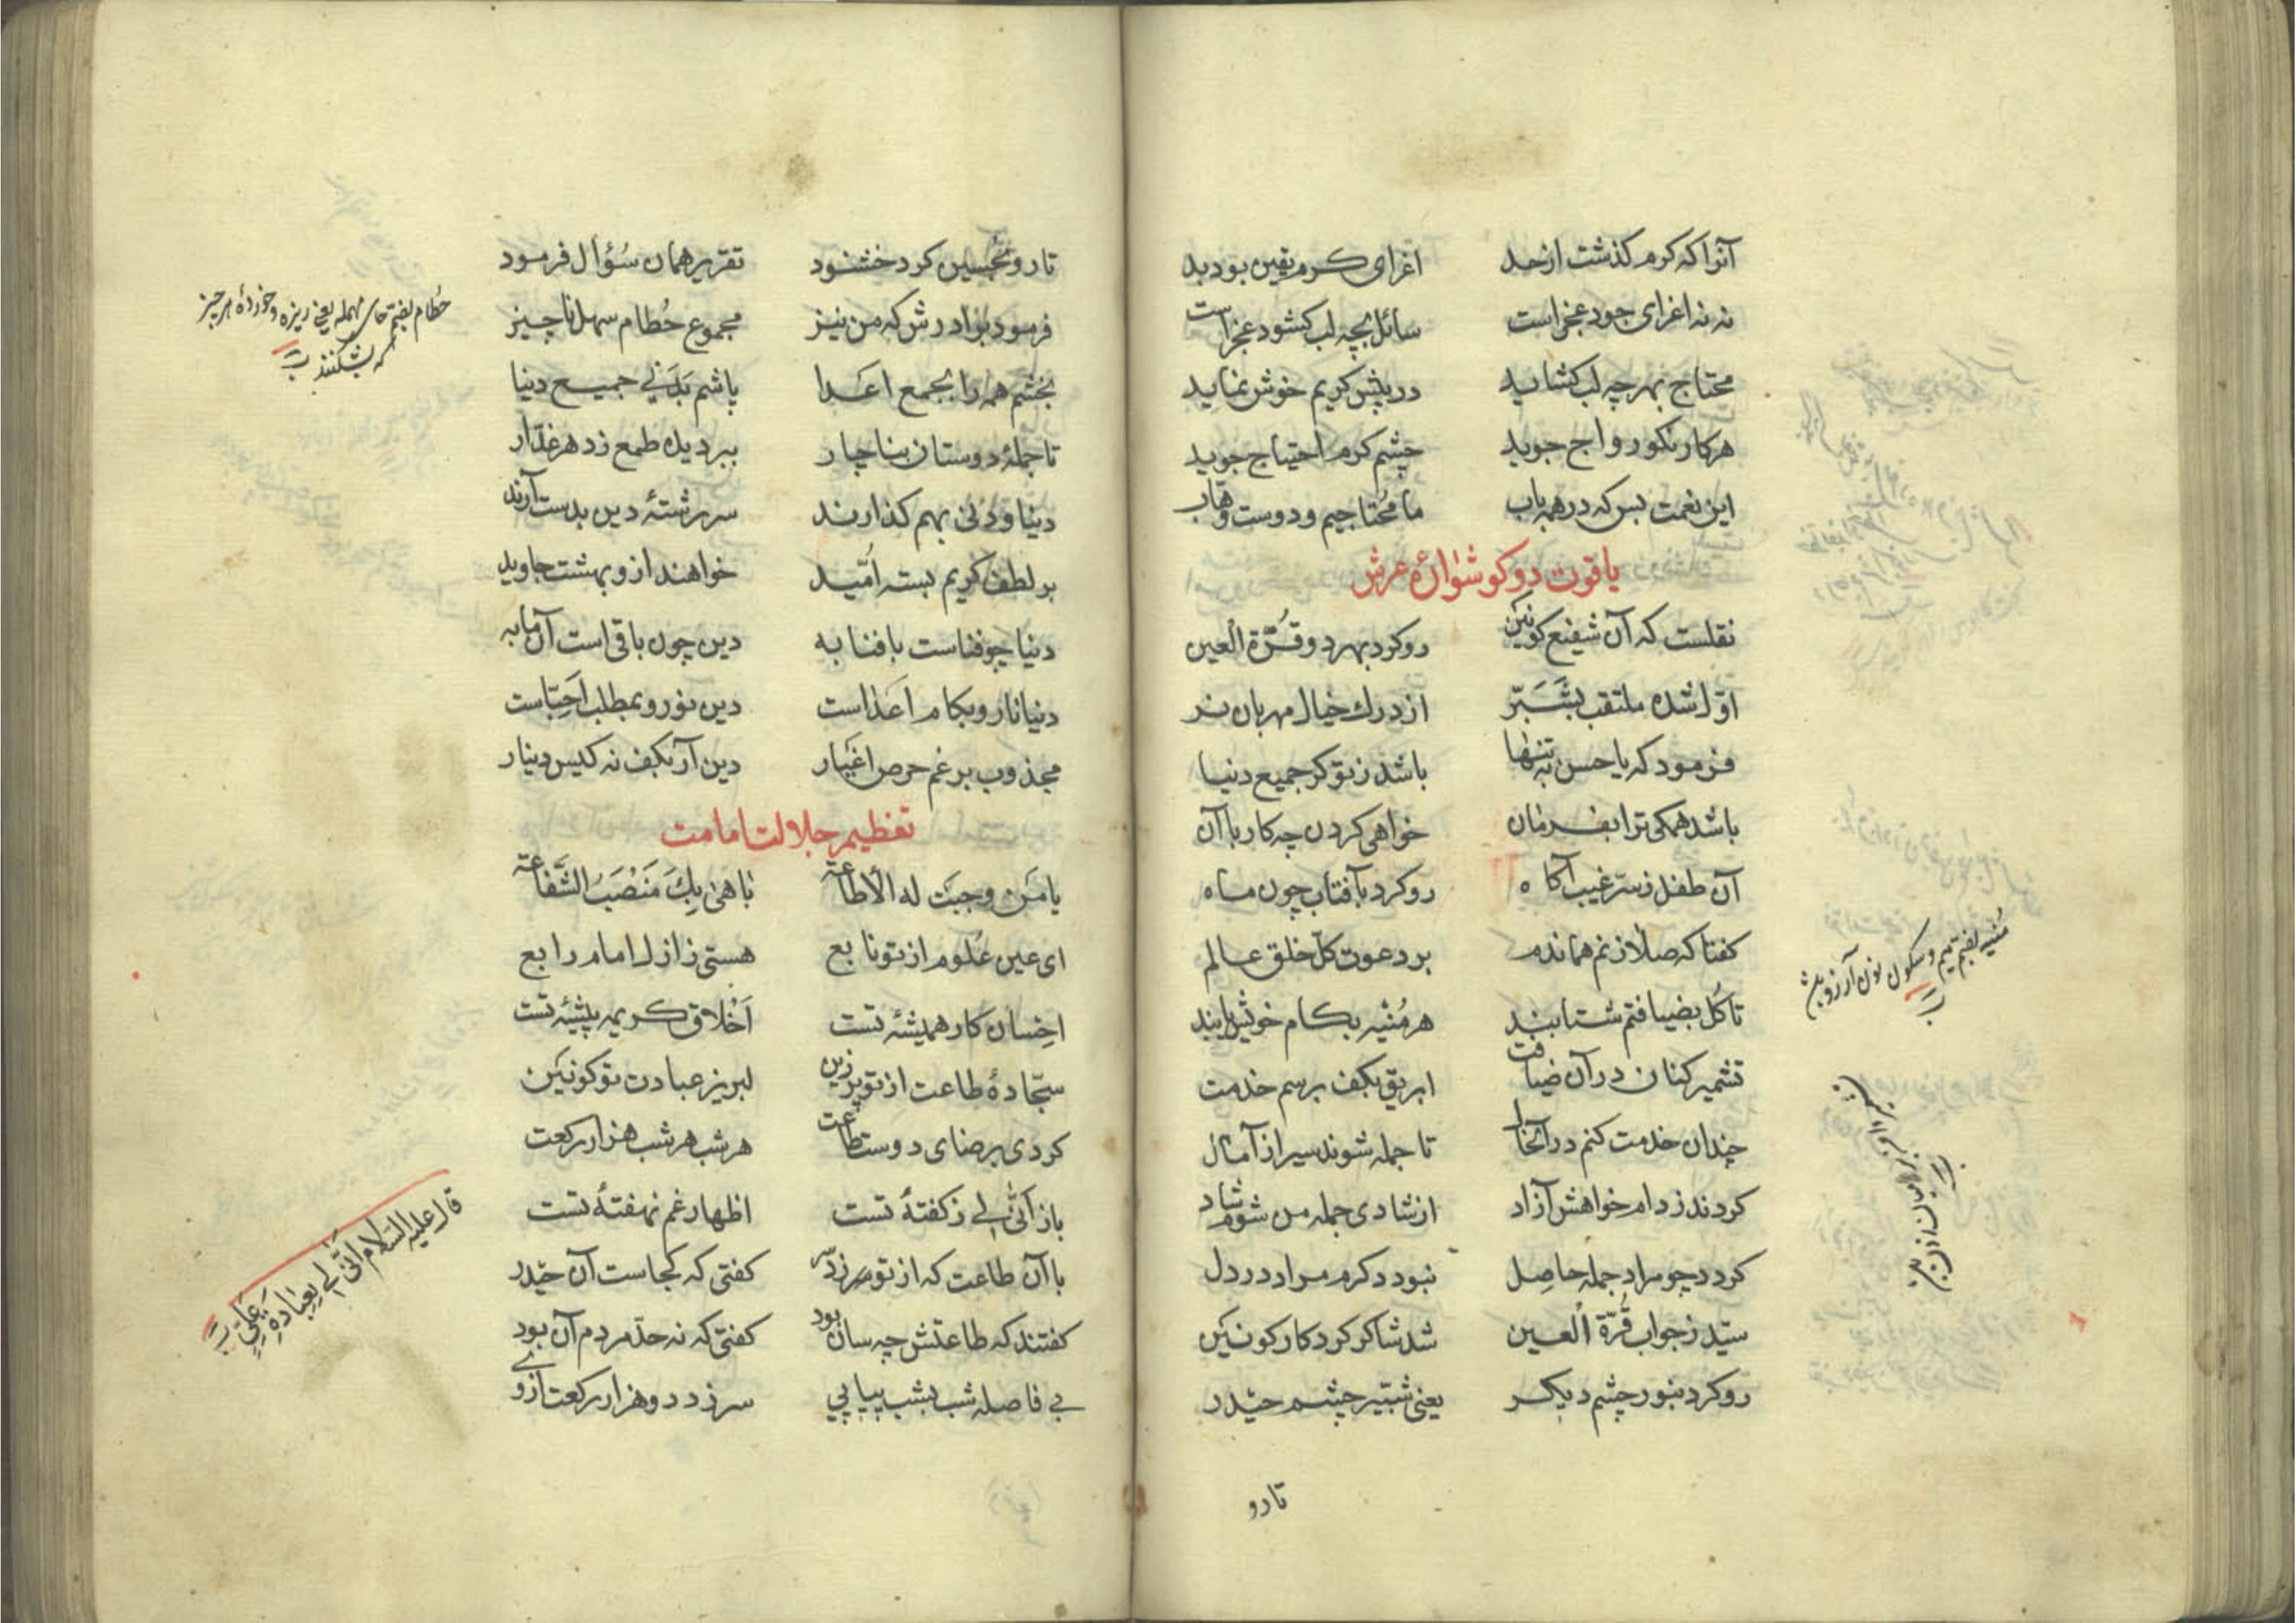 آنرا که کرم گذشت از حد اغرای کرم یقین بود بد
نه نه اغرای جود عجز است سائل بچه لب کشود عجز است
محتاج بهرچه لب کشاید در پیش کریم خوش نماید
هر کار نکو رواج جوید چشم کرم احتیاج جوید
این نعمت بس که در همه باب ما محتاجیم و دوست وهّاب
یاقوت دو کوشوارهٔ عرش
نقلست که آن شفیع کونین رو کرد بهر دو قُرّة العین
اوّل شده ملتفت بشَبَّر از درك خیال مهربان تر
فرمود که یا حسن به تنها باشد ز تو کر جمیع دنیا
باشد همکی ترا بفرمان خواهی کردن چه کار با آن
آن طفل ز سرّ غیب آکاه رو کرد بآفتاب چون ماه
کفتا که صلا زنم هماندم بر دعوت کلّ خلق عالم
تا کُل بضیافتم شتابند هر مُنیه بکام خویش یابند
تشمیر کنان در آن ضیافت ابریق بکف برسم خدمت
چندان خدمت کنم در آنحال تا جمله شوند سیر از آمال
کردند ز دام خواهش آزاد از شادی جمله من شوم شاد
کردد چو مراد جمله حاصل نبود دکرم مراد در دل
سیّد ز جواب قُرّة العین شد شاکر کردکار کونین
رو کرد بنور چشم دیکر یعنی شبّیر چشم حیدر
مُنیه بضم میم و سکون نون آرزو باشد
تا رو
تا رو بحُسین کرد خشنود تقریر همان سُؤال فرمود
فرمود برادرش که من نیز مجموع حُطام سهل ناچیز
بخشم همه را بجمع اعدا پاشم بَدَنی جمیع دنیا
تا جملهٔ دوستان بناچار ببرد طمع ز دهر غدّار
دنیا و دنی بهم کذارند سررشتهٔ دین بدست آرند
بر لطف کریم بسته اُمّید خواهند ازو بهشت جاوید
دنیا چو فناست با فنا به دین چون باقی است آن بما به
دنیا نار و بکام اَعداست دین نور و بمطلب اَحِبّاست
مجذوب برغم حرص اغیار دین آر بکف نه کیس دینار
تعظیم جلالت امامت
یا مَن وجبَت له الأطاعة باهیٰ بِكَ مَنْصَبُ الشَّفاعة
ای عین عُلوم از تو نابع هستی ز ازل امام رابع
اِحسان کار همیشهٔ تست اَخْلاق کریمه پیشهٔ تست
سجّادهٔ طاعت از تو پر زین لبریز عبادت تو کونین
کردی برضای دوست طاعت هر شب هر شب هزار رکعت
باز اَنّیٰ لی ز کفتهٔ تست اظهار غم نهفتهٔ تست
با آن طاعت که از تو سر زد کفتی که کجاست آن حیدر
کفتند که طاعتش چه سان بود کفتی که نه حدّ مردم آن بود
بی فاصله شب بشب پیاپی سر زد دو هزار رکعت از وی
حُطام بضم حای مهمله یعنی ریزه و خوردهٔ هر چیز
که بشکنند
قال علیه السَّلام اَنّیٰ لی بِعِبادَةِ عَلیٍّ